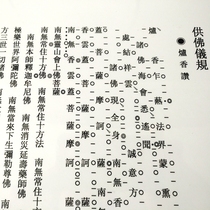 供佛儀規
爐香讚
爐香乍爇 法界蒙
諸佛海會悉遙聞
處結祥雲 誠意方
諸佛現全身
南無香雲蓋菩薩摩訶
香雲蓋菩薩摩訶
南無靈山會上佛菩薩
南無常住十方佛 南無常住十方法
南無本師釋迦牟尼佛 南無消災延壽藥師佛
極樂世界阿彌陀佛 南無當來下生彌勒尊佛
方三世一切諸佛 南無